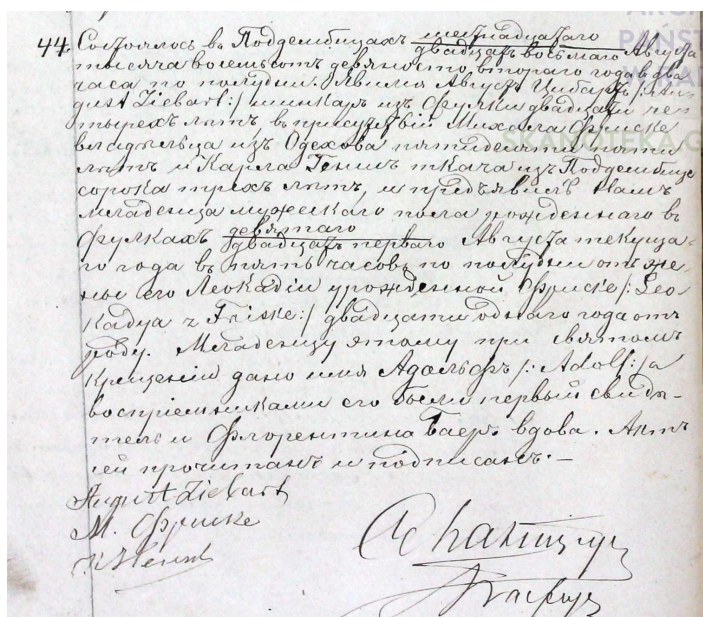 44. Состоялось въ Поддембицахъ шестнадцатаго
двадцать восьмаго Августа
тысяча восемьсотъ девяносто втораго года въ два
часа по полудни. Явился Августъ Цибартъ /: Au-
gust Ziebart :/ шинкарь изъ Фулки двадцати че-
тырехъ лѣтъ, въ присутствіи Михала Фриске
владѣльца изъ Одехова пятидесяти пяти
лѣтъ и Карла Геншъ ткача изъ Поддембице
сорока трехъ лѣтъ, и предъявилъ Намъ
младенца мужескаго пола рожденнаго въ
Фулкахъ девятаго
двадцать перваго Августа текуща-
го года въ пять часовъ по полудни отъ же-
ны его Леокадіи урожденной Фриске /: Leo-
kadya z Friske :/ двадцати одного года отъ
роду. Младенцу этому при святомъ
крещеніи дано имя Адольфъ /: Adolf :/ а
воспріемниками его были первый свидѣ-
тель и Флорентина Баеръ вдова. Актъ
сей прочитанъ и подписанъ. —
August Ziebart
М. Фриске